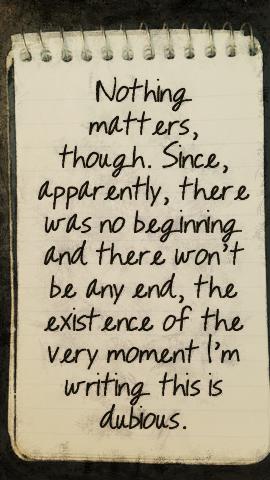 Nothing
matters,
though. Since,
apparently, there
was no beginning
and there won't
be any end, the
existence of the
very moment I'm
writing this is
dubious.